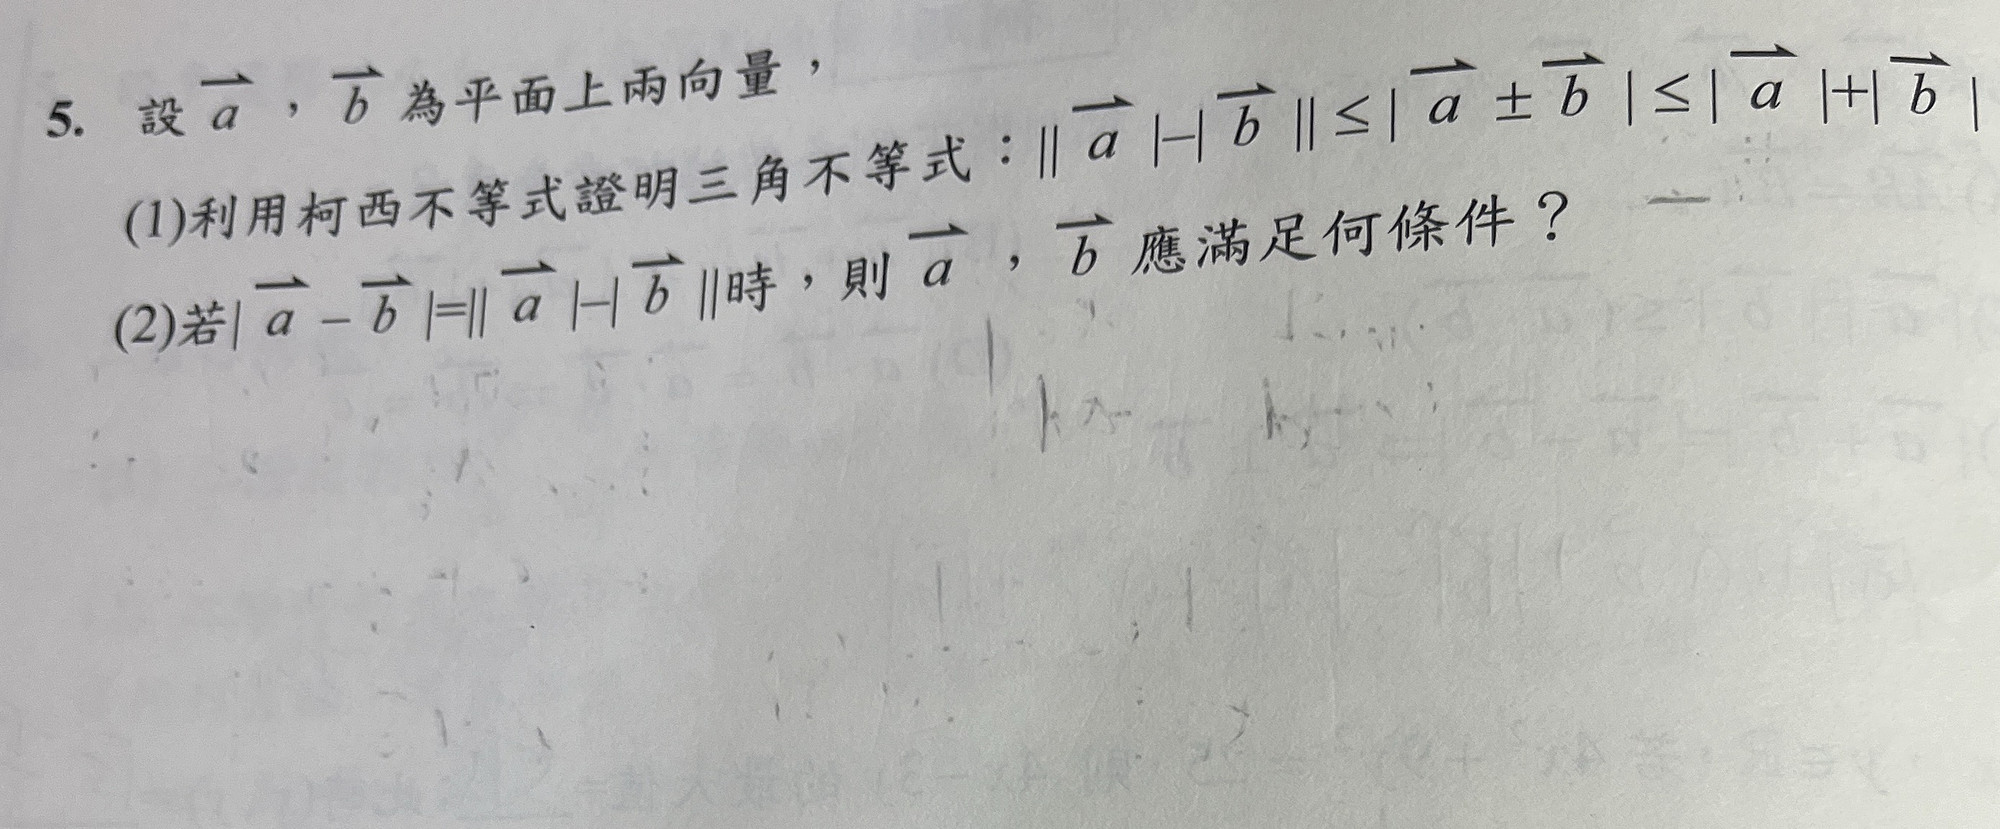 5. 設 $\overrightarrow{a}$ ， $\overrightarrow{b}$ 為平面上兩向量，
(1)利用柯西不等式證明三角不等式：|| $\overrightarrow{a}$ |−| $\overrightarrow{b}$ || ≤ | $\overrightarrow{a}$ ± $\overrightarrow{b}$ | ≤ | $\overrightarrow{a}$ |+| $\overrightarrow{b}$ |
(2)若| $\overrightarrow{a}$ − $\overrightarrow{b}$ |=|| $\overrightarrow{a}$ |−| $\overrightarrow{b}$ ||時，則 $\overrightarrow{a}$ ， $\overrightarrow{b}$ 應滿足何條件？